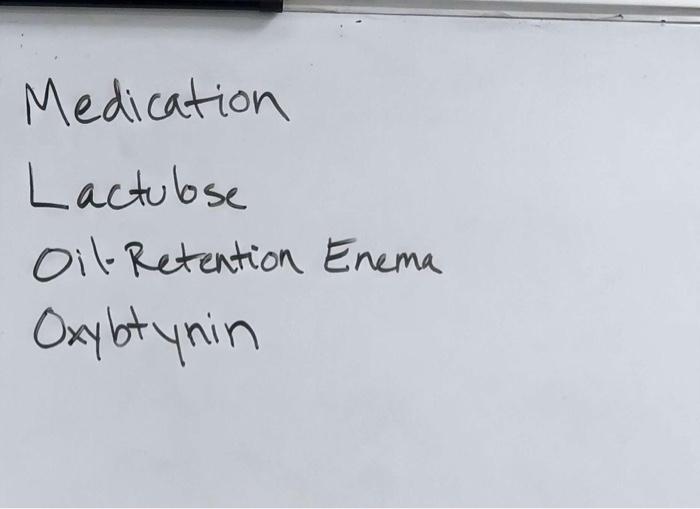 Medication
Lactulose
Oil-Retention Enema
Oxybtynin